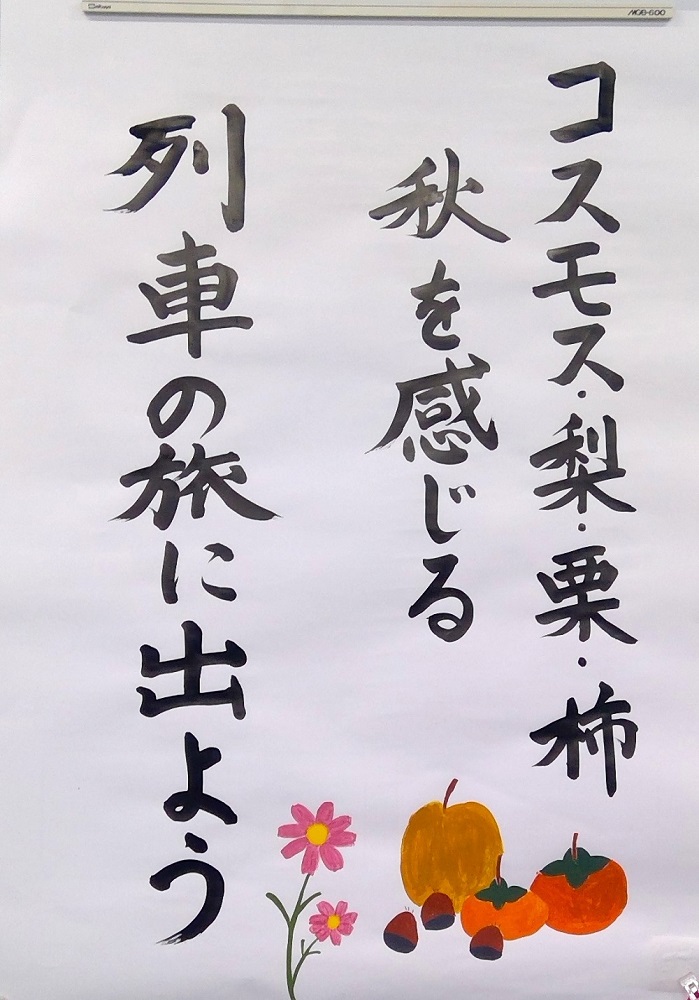 コスモス・梨・栗・柿
秋を感じる
列車の旅に出よう
MCB-600